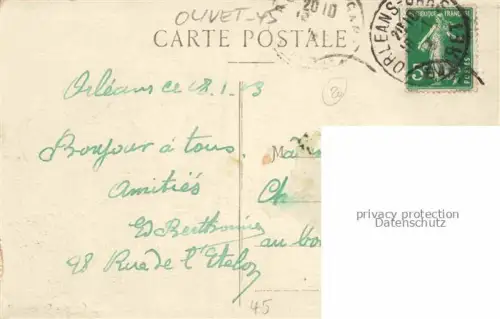 OLIVET-45
CARTE POSTALE
20 10
ORLEANS-GARE
LOIRET
5
POSTES
Orléans ce 18.1.13
Bonjour à tous.
Amitiés
Ed Berthonnier
98 Rue de l'Etelon
Ma
Ch
au
privacy protection
Datenschutz
45